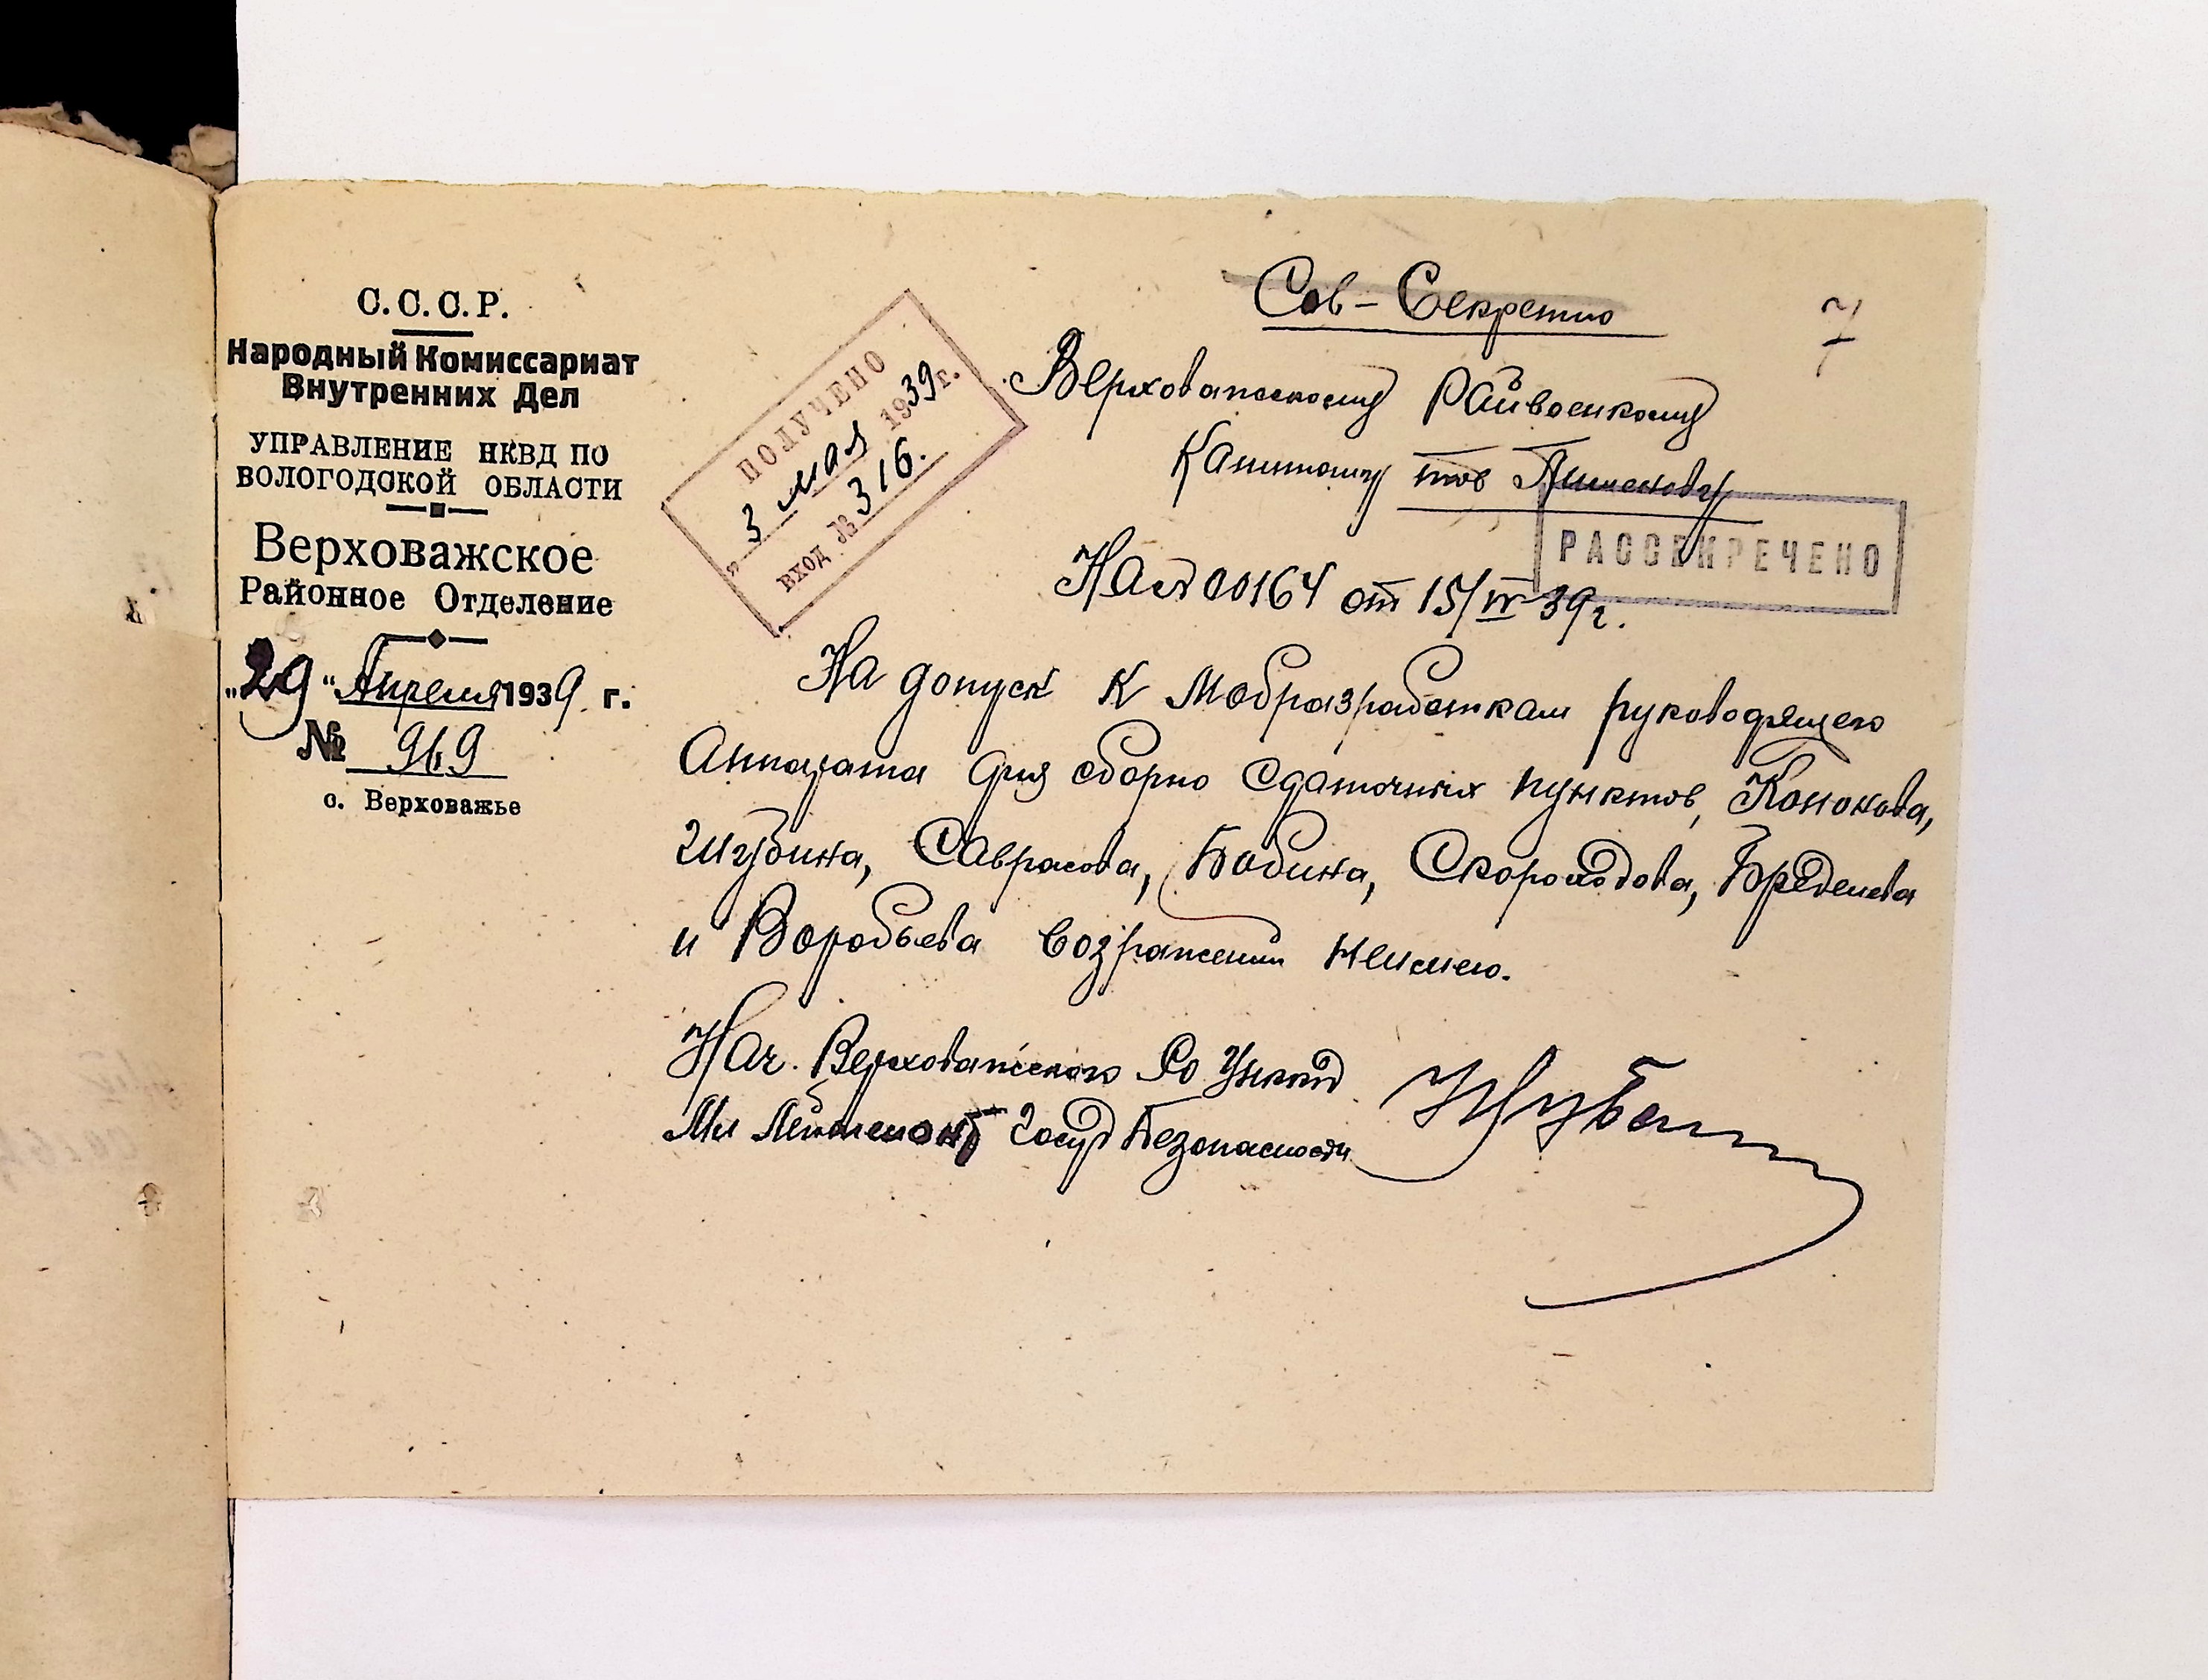 С.С.С.Р.
Народный Комиссариат
Внутренних Дел
УПРАВЛЕНИЕ НКВД ПО
ВОЛОГОДСКОЙ ОБЛАСТИ
Верховажское
Районное Отделение
„29“ Апреля 1939 г.
№ 969
с. Верховажье
ПОЛУЧЕНО
„3 мая 1939 г.
ВХОД № 316.
Сов-Секретно
7
Верховажскому Райвоенкому
Капитану тов
РАССЕКРЕЧЕНО
На № 00164 от 15/IV 39 г.
На допуск к Мобразработкам руководящего
Аппарата для сборно сдаточных пунктов, Кононова,
Шубина, Саврасова, Бобина, Скороходова,
и Воробьева возражений неимею.
Нач. Верховажского РоУнквд
Мл Лейтенант Госуд Безопасности